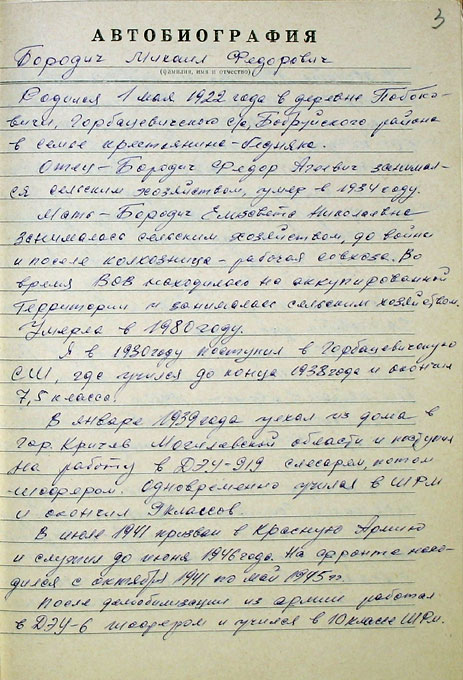 3
АВТОБИОГРАФИЯ
Бородич Михаил Федорович
(фамилия, имя и отчество)
Родился 1 мая 1922 года в деревне Побоко-
вичи, Горбацевичского с/с, Бобруйского района
в семье крестьянина-бедняка.
Отец - Бородич Федор Агеевич занимал-
ся сельским хозяйством, умер в 1934 году.
Мать - Бородич Елизавета Николаевна
занималась сельским хозяйством, до войны
и после колхозница - рабочая совхоза. Во
время ВОВ находилась на оккупированной
территории и занималась сельским хозяйством.
Умерла в 1980 году.
Я в 1930 году поступил в Горбацевичскую
СШ, где учился до конца 1938 года и окончил
7,5 класса.
В январе 1939 года уехал из дома в
гор. Кричев Могилевской области и поступил
на работу в ДЭУ-919 слесарем, потом
шофером. Одновременно учился в ШРМ
и окончил 9 классов.
В июле 1941 призван в Красную Армию
и служил до июня 1946 года. На фронте нахо-
дился с октября 1941 по май 1945 гг.
После демобилизации из армии работал
в ДЭУ-6 шофером и учился в 10 классе ШРМ.